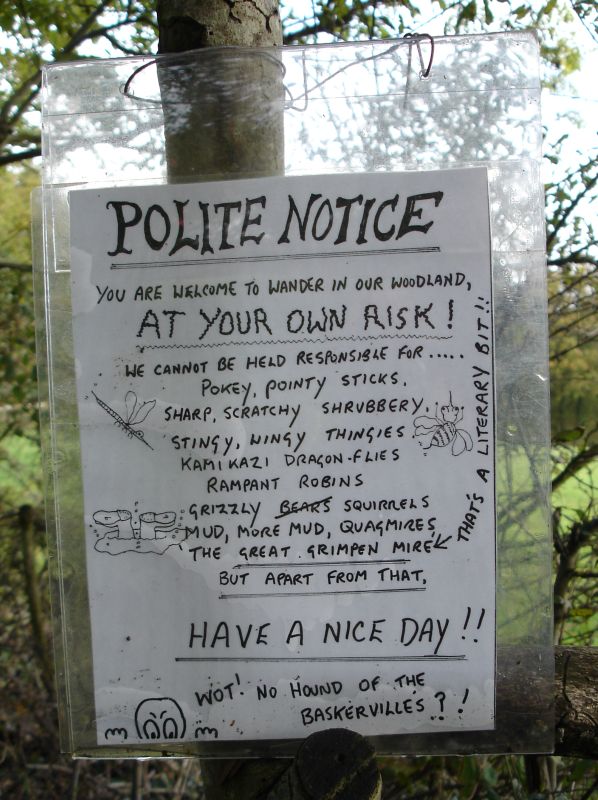 POLITE NOTICE
YOU ARE WELCOME TO WANDER IN OUR WOODLAND,
AT YOUR OWN RISK!
WE CANNOT BE HELD RESPONSIBLE FOR.....
POKEY, POINTY STICKS,
SHARP, SCRATCHY SHRUBBERY,
STINGY, WINGY THINGIES
KAMIKAZI DRAGON-FLIES
RAMPANT ROBINS
GRIZZLY BEARS SQUIRRELS
MUD, MORE MUD, QUAGMIRES,
THE GREAT GRIMPEN MIRE
THAT'S A LITERARY BIT!!
BUT APART FROM THAT,
HAVE A NICE DAY!!
WOT! NO HOUND OF THE
BASKERVILLES?!